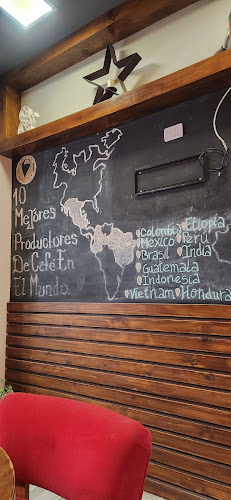 10
Mejores
Productores
De Café En
El Mundo
Colombia Etiopía
Mexico Perú
Brasil India
Guatemala
Indonesia
Vietnam Hondura